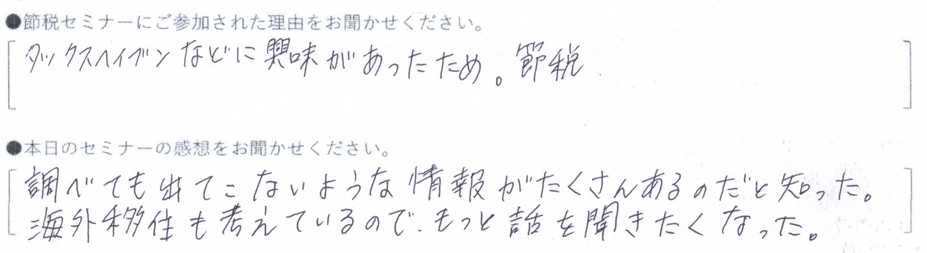 ●節税セミナーにご参加された理由をお聞かせください。
タックスヘイブンなどに興味があったため。節税
●本日のセミナーの感想をお聞かせください。
調べても出てこないような情報がたくさんあるのだと知った。
海外移住も考えているので、もっと話を聞きたくなった。